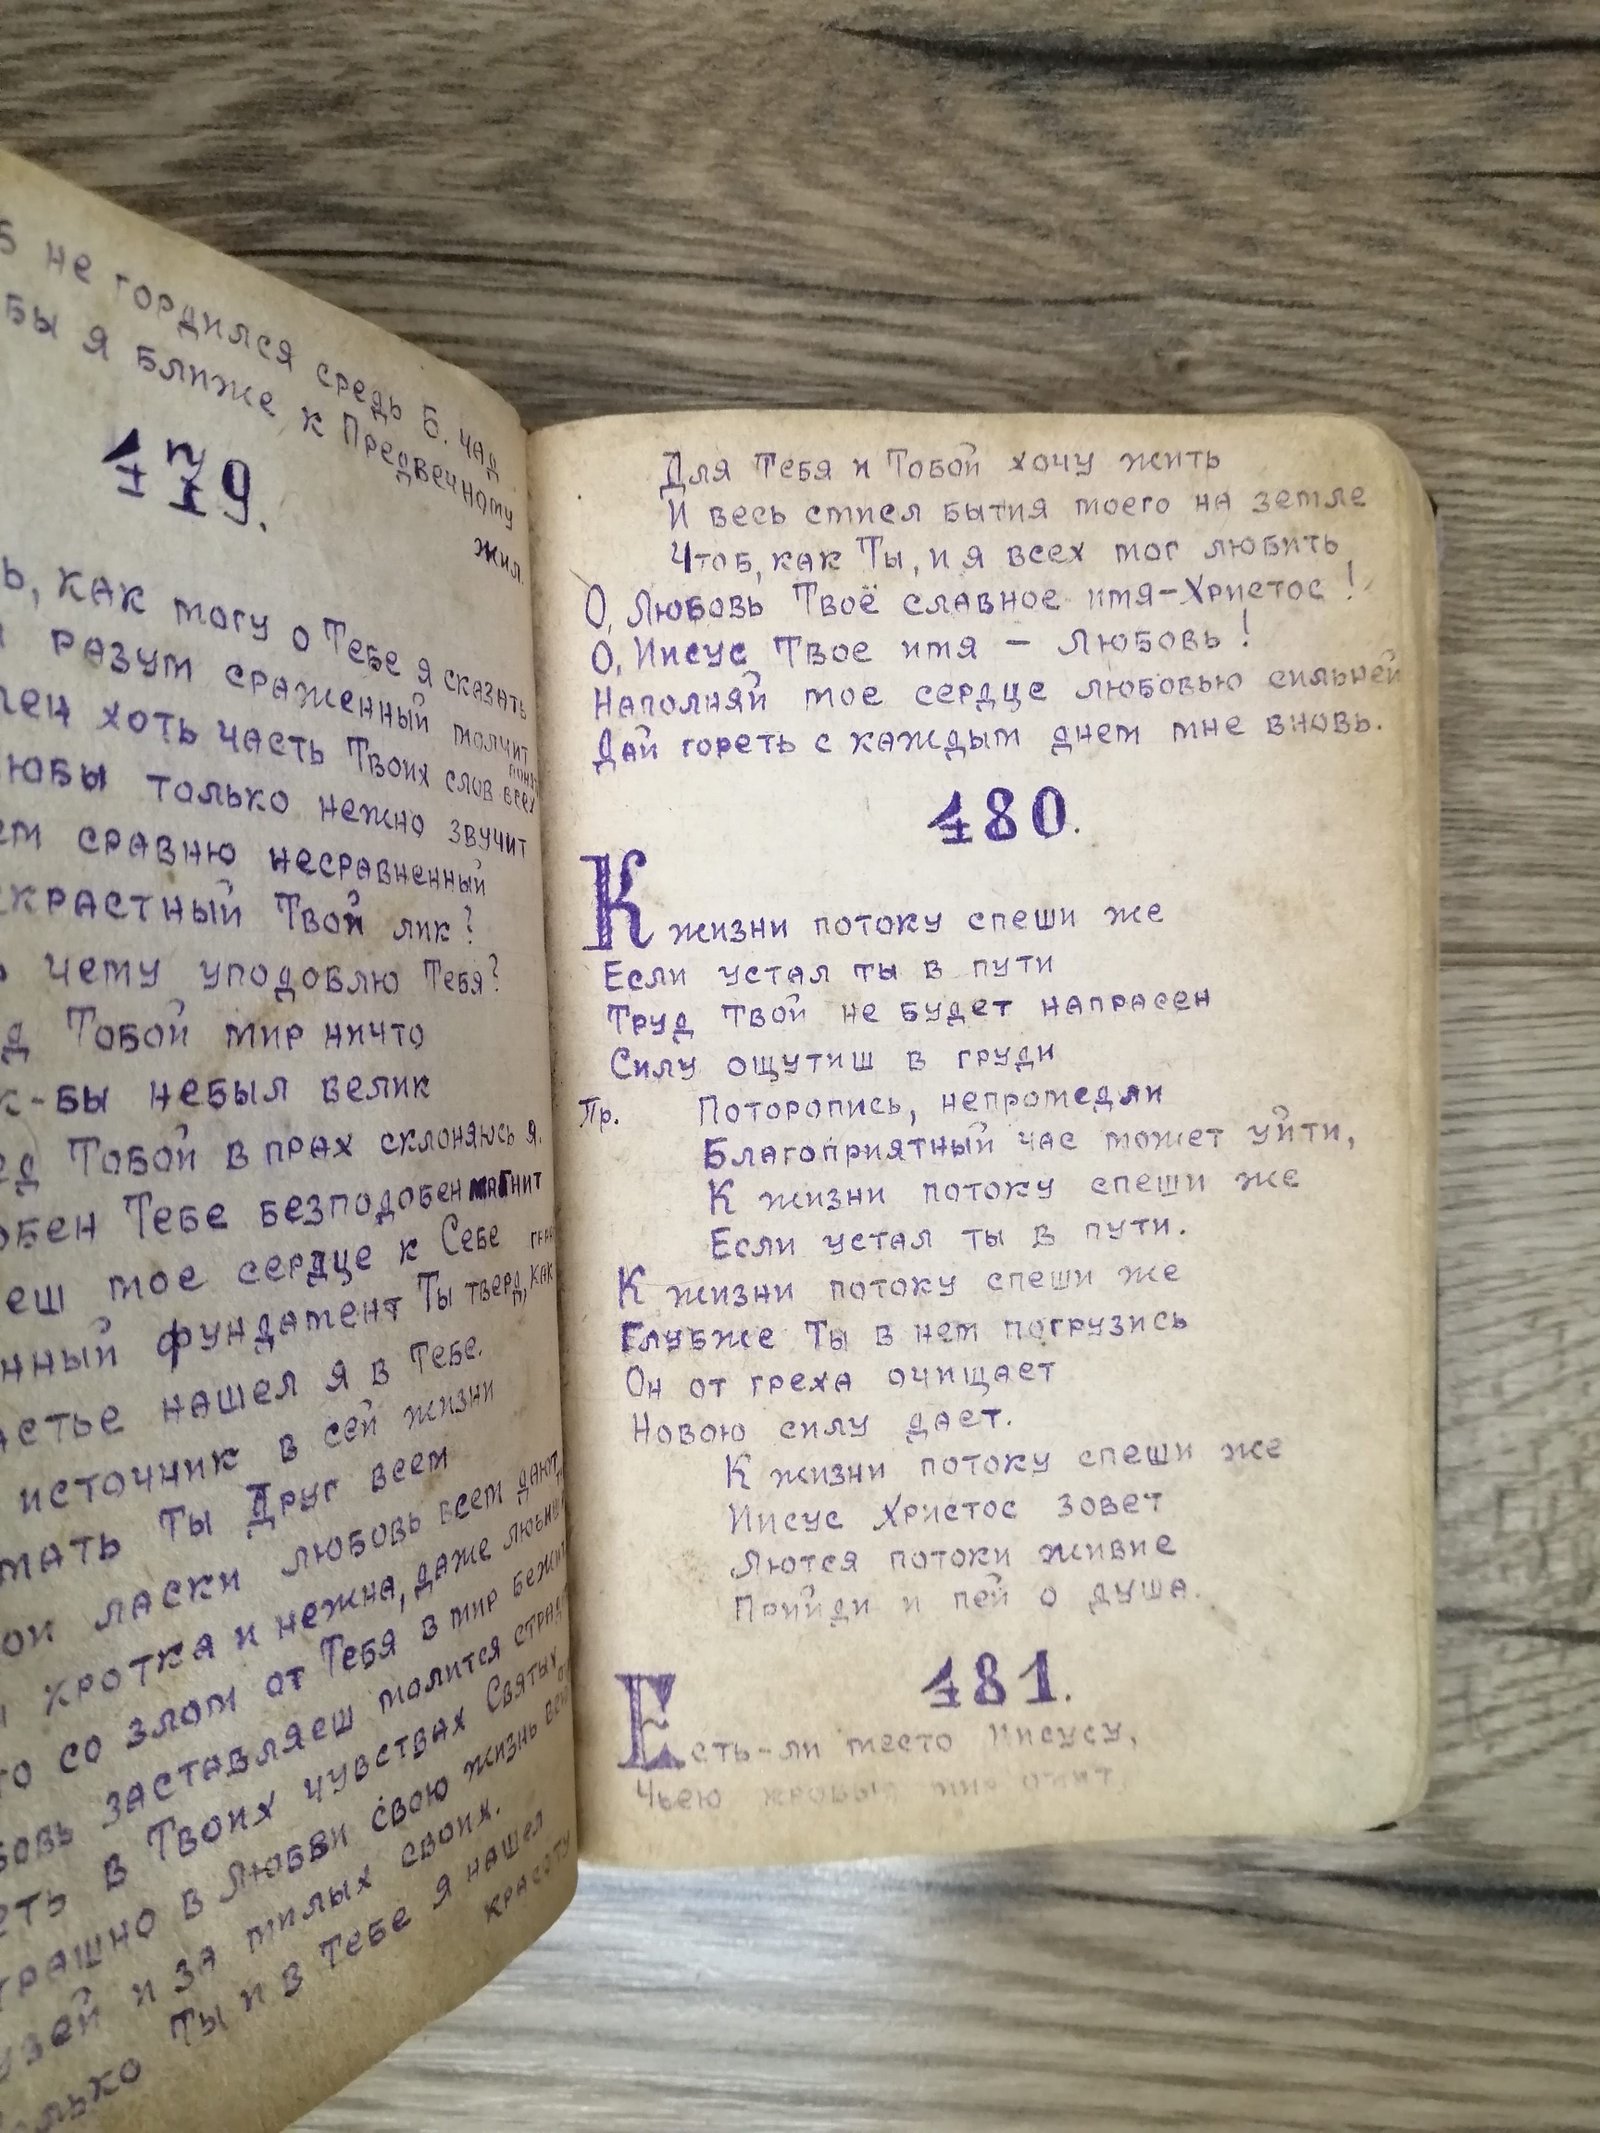 не гордился средь Б. чад
бы я ближе к Предвечному
жил.
179.
как могу о Тебе я сказать
разум сраженный молчит
хоть часть Твоих слов всех
только нежно звучит
сравню несравненный
Твой лик?
чему уподоблю Тебя?
Тобой мир ничто
к-бы небыл велик
Тобой в прах склоняюсь я.
Тебе безподобен магнит
мое сердце к Себе
фундамент Ты тверд, как
нашел я в Тебе.
источник в сей жизни
Ты Друг всем
ласки любовь всем дают
кротка и нежна, даже
со злом от Тебя в мир бежит
заставляеш молится
в Твоих чувствах Святых
в Любви свою жизнь
и за милых своих.
Ты и в Тебе я нашел
красоту
Для Тебя и Тобой хочу жить
И весь смисл бытия моего на земле
Чтоб, как Ты, и я всех мог любить
О, Любовь Твоё славное имя-Христос!
О, Иисус Твое имя - Любовь!
Наполняй мое сердце любовью сильней
Дай гореть с каждым днем мне вновь.
180.
К жизни потоку спеши же
Если устал ты в пути
Труд твой не будет напрасен
Силу ощутиш в груди
Пр. Поторопись, непромедли
Благоприятный час может уйти,
К жизни потоку спеши же
Если устал ты в пути.
К жизни потоку спеши же
Глубже Ты в нем погрузись
Он от греха очищает
Новою силу дает.
К жизни потоку спеши же
Иисус Христос зовет
Лются потоки живие
Прийди и пей о душа.
181.
Есть-ли место Иисусу,
Чьею